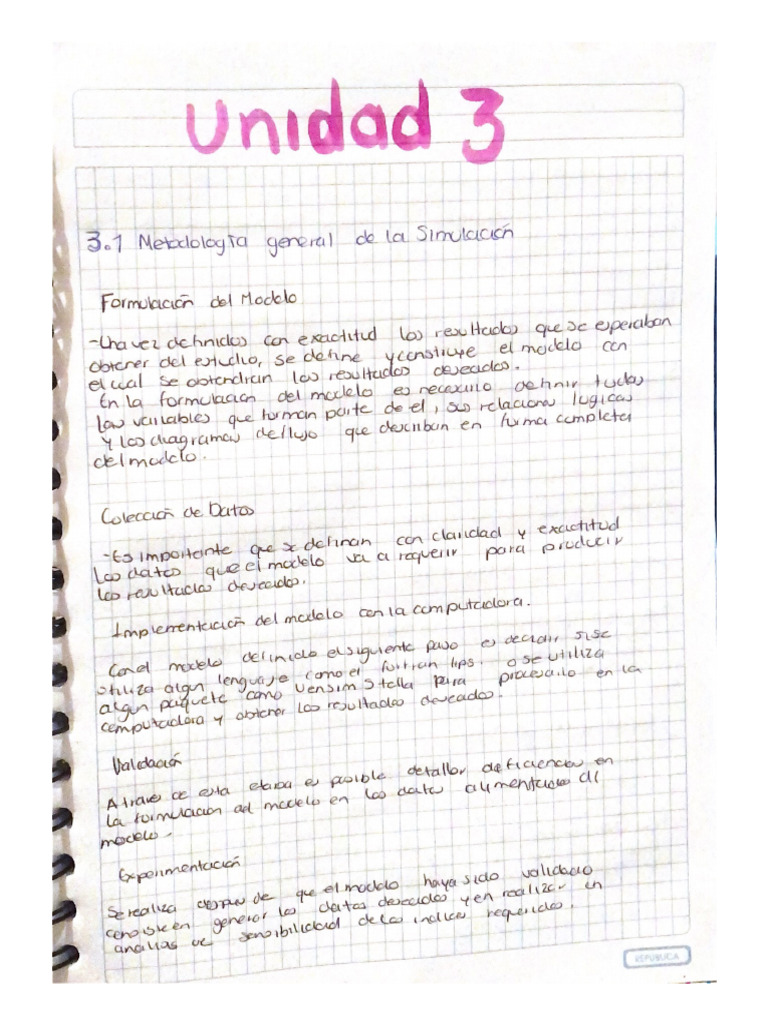 Unidad 3
3.1 Metodología general de la Simulación
Formulación del Modelo
-Una vez definidos con exactitud los resultados que se esperaban
obtener del estudio, se define y construye el modelo con
el cual se obtendrian los resultados deseados.
En la formulación del modelo es necesario definir todas
las variables que forman parte de el, sus relaciones logicas
y los diagramas de flujo que describan en forma completa
del modelo.
Colección de Datos
-Es importante que se definan con claridad y exactitud
los datos que el modelo va a requerir para producir
los resultados deseados.
Implementación del modelo con la computadora.
Con el modelo definido el siguiente paso es decidir si se
utiliza algun lenguaje como el fortran lips. o se utiliza
algun paquete como Vensim Stella para procesarlo en la
computadora y obtener los resultados deseados.
Validación
A traves de esta etapa es posible detallar deficiencias en
la formulación del modelo en los datos alimentados al
modelo.
Experimentación
Se realiza despues de que el modelo haya sido validado
consiste en generar los datos deseados y en realizar en
analisis de sensibilidad de los indices requeridos.
REPÚBLICA